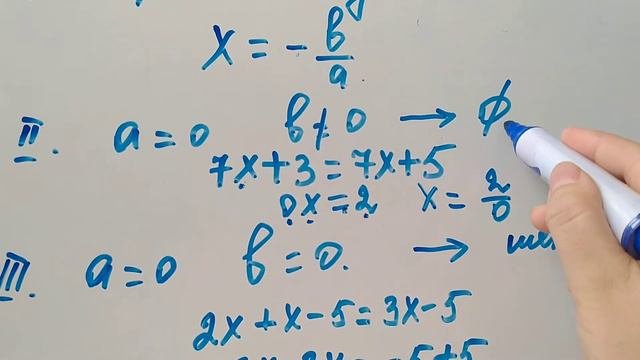 x = - b/a
II. a = 0 b ≠ 0 → ∅
7x + 3 = 7x + 5
0x = 2 x = 2/0
III. a = 0 b = 0. →
2x + x - 5 = 3x - 5